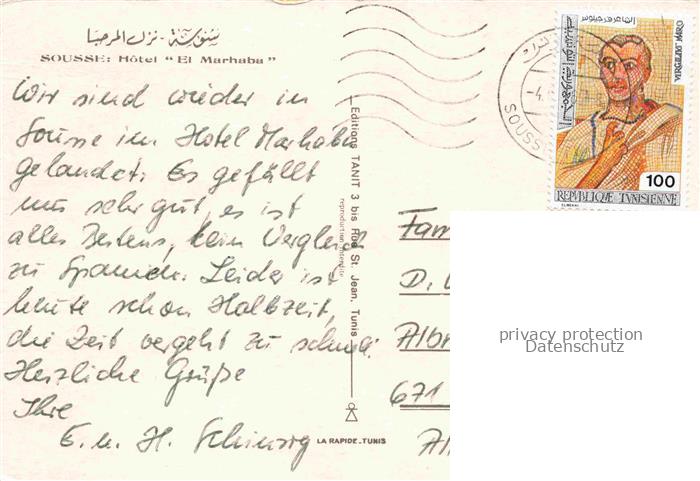 سوسة - نزل المرحبا
SOUSSE: Hôtel "El Marhaba"
Wir sind wieder in
Sousse im Hotel Marhaba
gelandet. Es gefällt
uns sehr gut, es ist
alles Bestens, kein Vergleich
zu Spanien. Leider ist
heute schon Halbzeit,
die Zeit vergeht zu schnell.
Herzliche Grüße
Ihre
E. u. H.
Editions TANIT 3 bis Rue St. Jean, Tunis
reproduction interdite
LA RAPIDE-TUNIS
SOUSS
الجمهورية التونسية
VERGILIUS MARO
100
REPUBLIQUE TUNISIENNE
Fam
D.
Alb
671
Al
privacy protection
Datenschutz